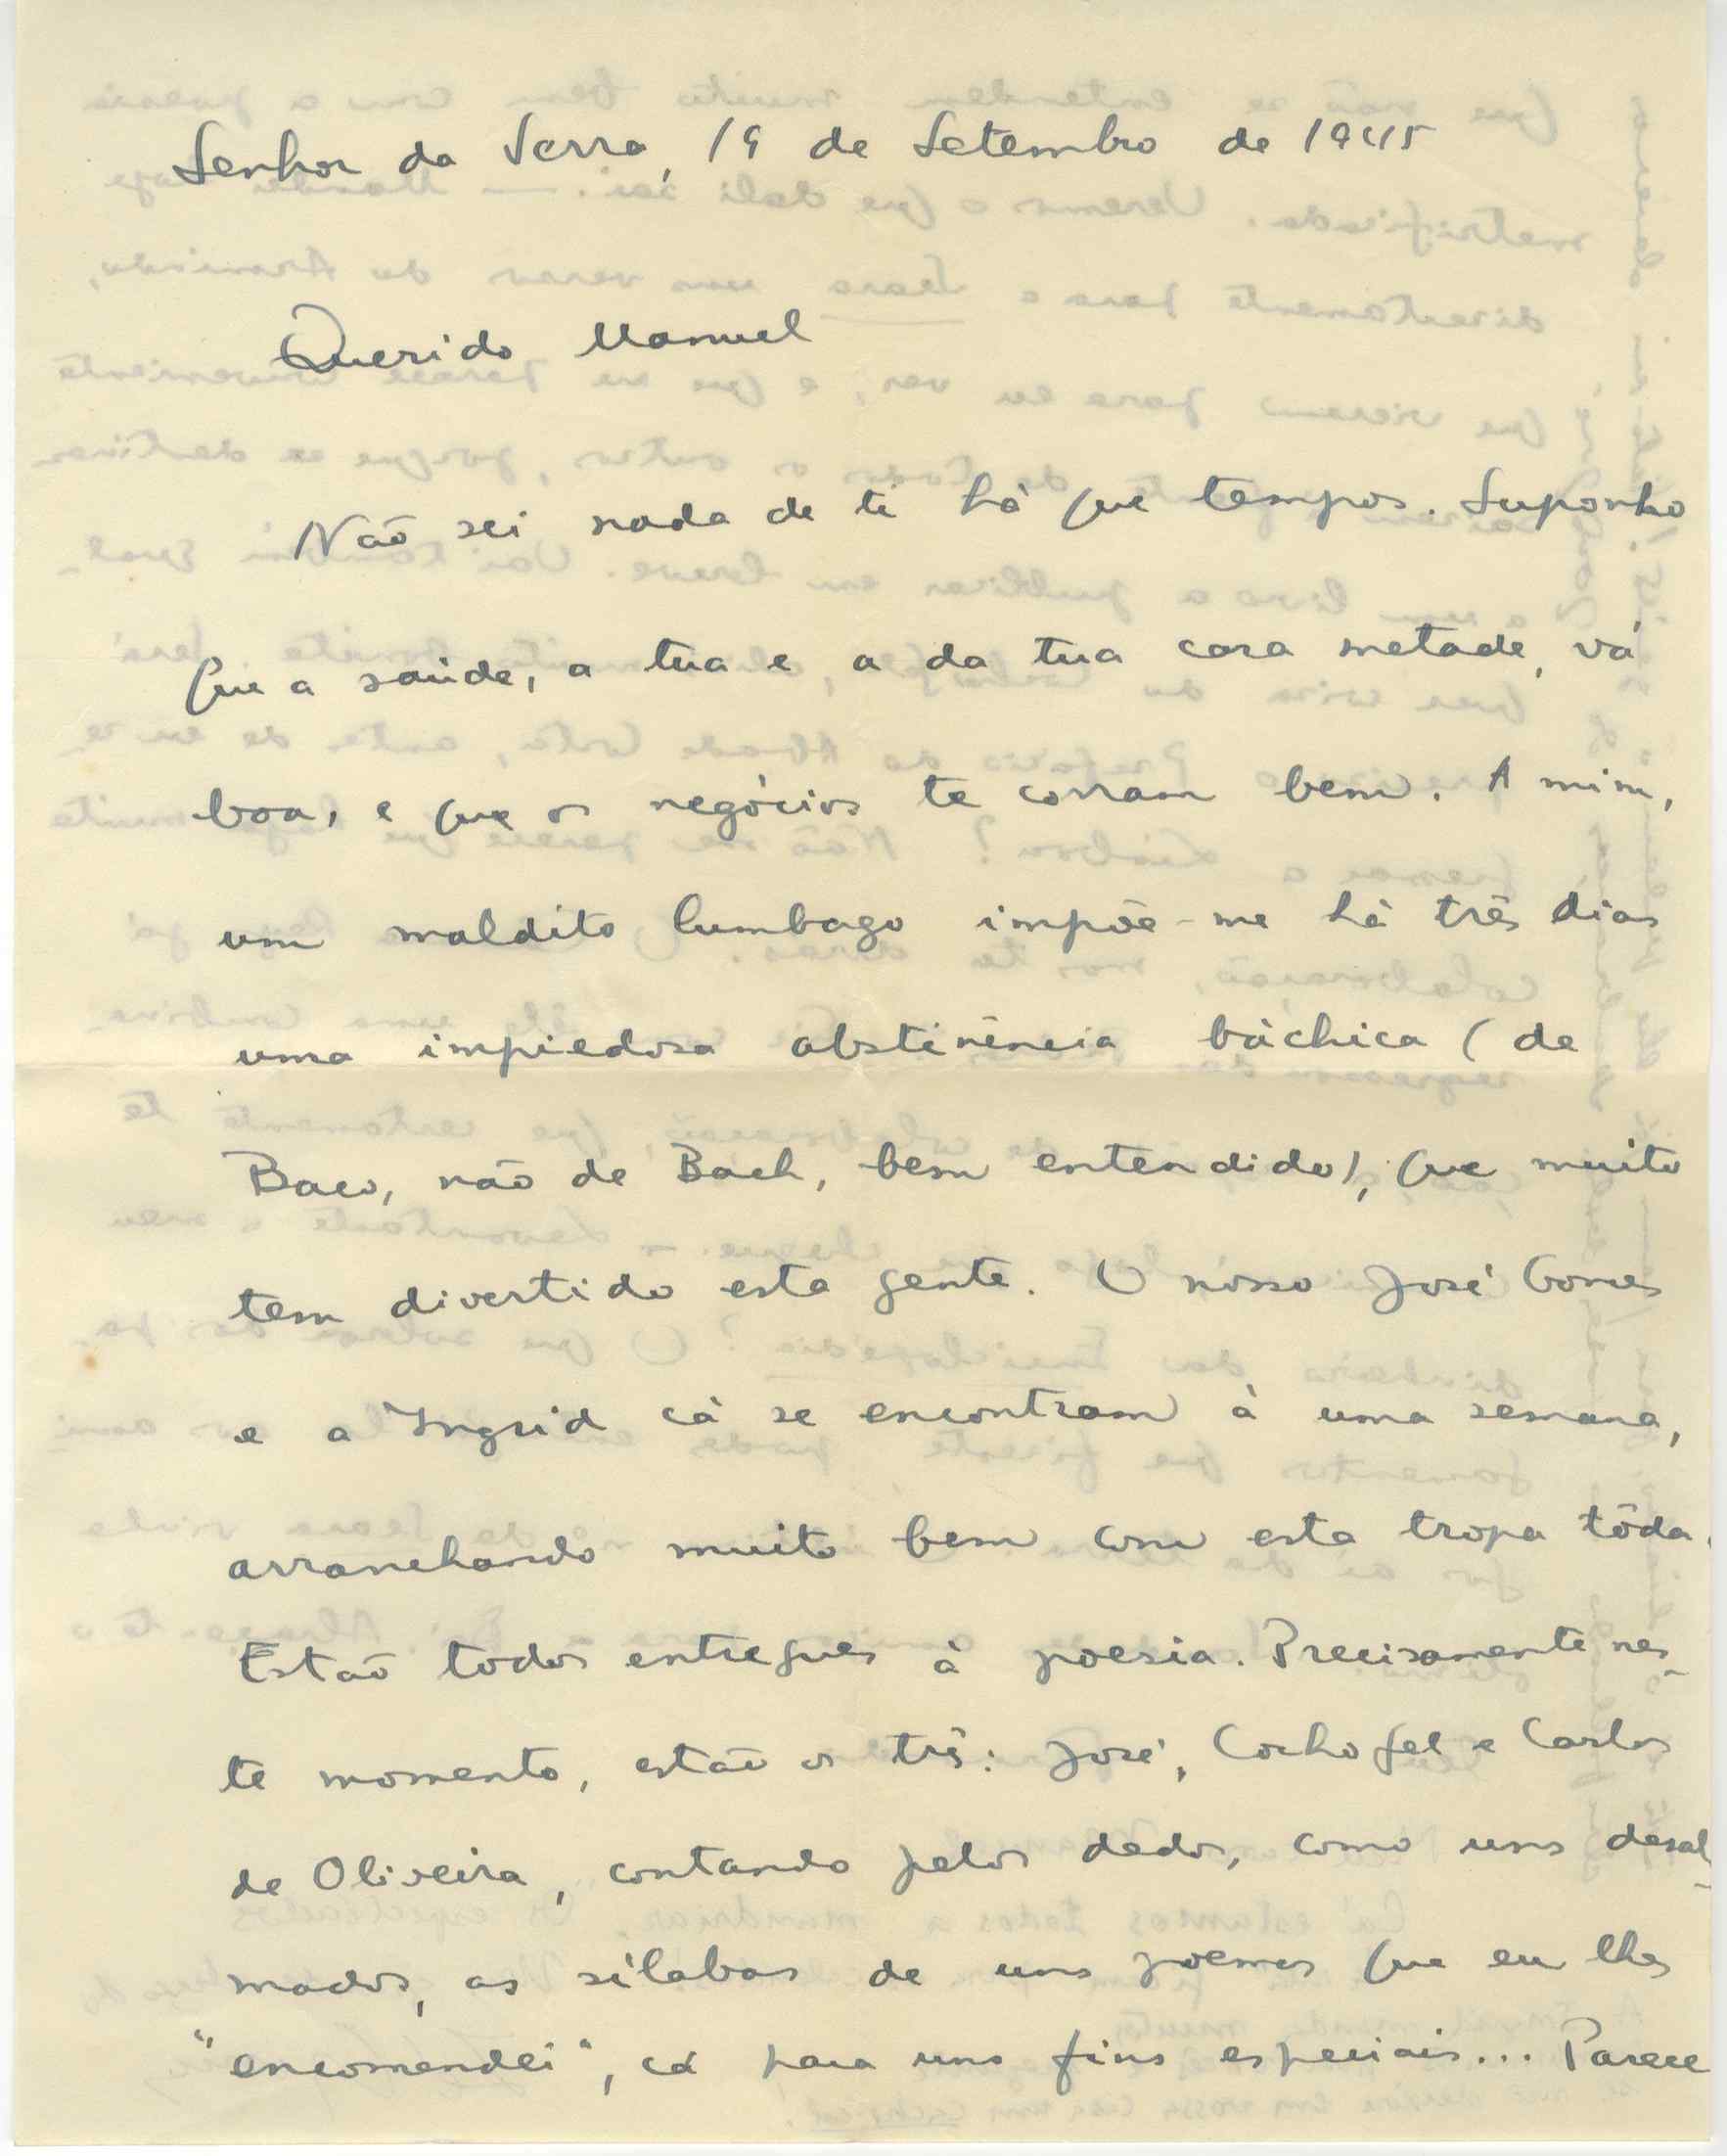 Senhor da Serra, 19 de Setembro de 1945
Querido Manuel
Não sei nada de ti há que tempos. Suponho
que a saúde, a tua e a da tua cara metade, vá
boa, e que os negócios te corram bem. A mim,
um maldito lumbago impõe-me há três dias
uma impiedosa abstinência báchica (de
Baco, não de Bach, bem entendido), que muito
tem divertido esta gente. O nosso José Gomes
e a Ingrid cá se encontram à uma semana,
arranchando muito bem com esta tropa tôda.
Estão todos entregues à poesia. Precisamente nes-
te momento, estão os três: José, Cochofel e Carlos
de Oliveira, contando pelos dedos, como uns desal-
mados, as sílabas de uns poemas que eu lhes
"encomendei", cá para uns fins especiais... Parece